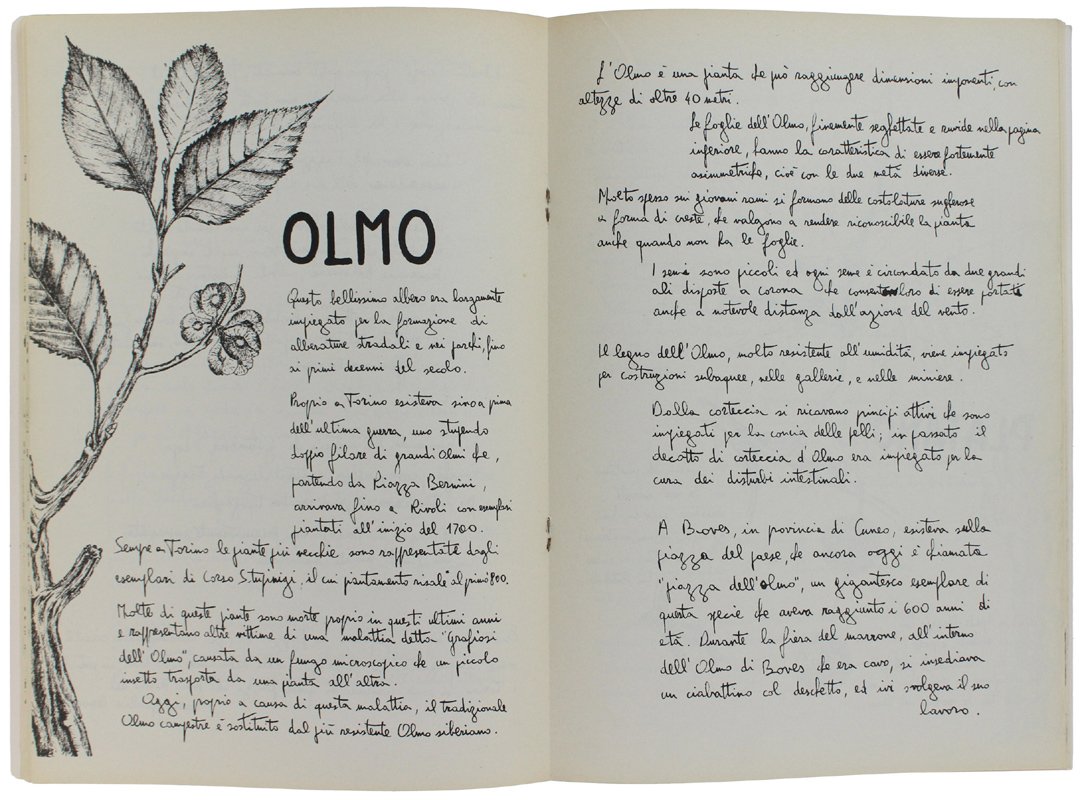 OLMO
Questo bellissimo albero era largamente
impiegato per la formazione di
alberature stradali e nei parchi, fino
ai primi decenni del secolo.
Proprio a Torino esisteva sino a prima
dell'ultima guerra, uno stupendo
doppio filare di grandi olmi che,
partendo da Piazza Bernini,
arrivava fino a Rivoli con esemplari
piantati all'inizio del 1700.
Sempre a Torino le piante più vecchie sono rappresentate dagli
esemplari di Corso Stupinigi, il cui piantamento risale al primo '800.
Molte di queste piante sono morte proprio in questi ultimi anni
e rappresentano altre vittime di una malattia detta "Grafiosi
dell'Olmo", causata da un fungo microscopico che un piccolo
insetto trasporta da una pianta all'altra.
Oggi, proprio a causa di questa malattia, il tradizionale
Olmo campestre è sostituito dal più resistente Olmo siberiano.
L'Olmo è una pianta che può raggiungere dimensioni imponenti, con
altezze di oltre 40 metri.
Le foglie dell'Olmo, finemente seghettate e ruvide nella pagina
inferiore, hanno la caratteristica di essere fortemente
asimmetriche, cioè con le due metà diverse.
Molto spesso sui giovani rami si formano delle costolature sugherose
a forma di creste, che valgono a rendere riconoscibile la pianta
anche quando non ha le foglie.
I semi sono piccoli ed ogni seme è circondato da due grandi
ali disposte a corona che consentono loro di essere portati
anche a notevole distanza dall'azione del vento.
Il legno dell'Olmo, molto resistente all'umidità, viene impiegato
per costruzioni subaquee, nelle gallerie, e nelle miniere.
Dalla corteccia si ricavano principi attivi che sono
impiegati per la concia delle pelli; in passato il
decotto di corteccia d'Olmo era impiegato per la
cura dei disturbi intestinali.
A Boves, in provincia di Cuneo, esisteva sulla
piazza del paese, che ancora oggi è chiamata
"piazza dell'olmo", un gigantesco esemplare di
questa specie che aveva raggiunto i 600 anni di
età. Durante la fiera del marrone, all'interno
dell'Olmo di Boves che era cavo, si insediava
un ciabattino col deschetto, ed ivi svolgeva il suo
lavoro.